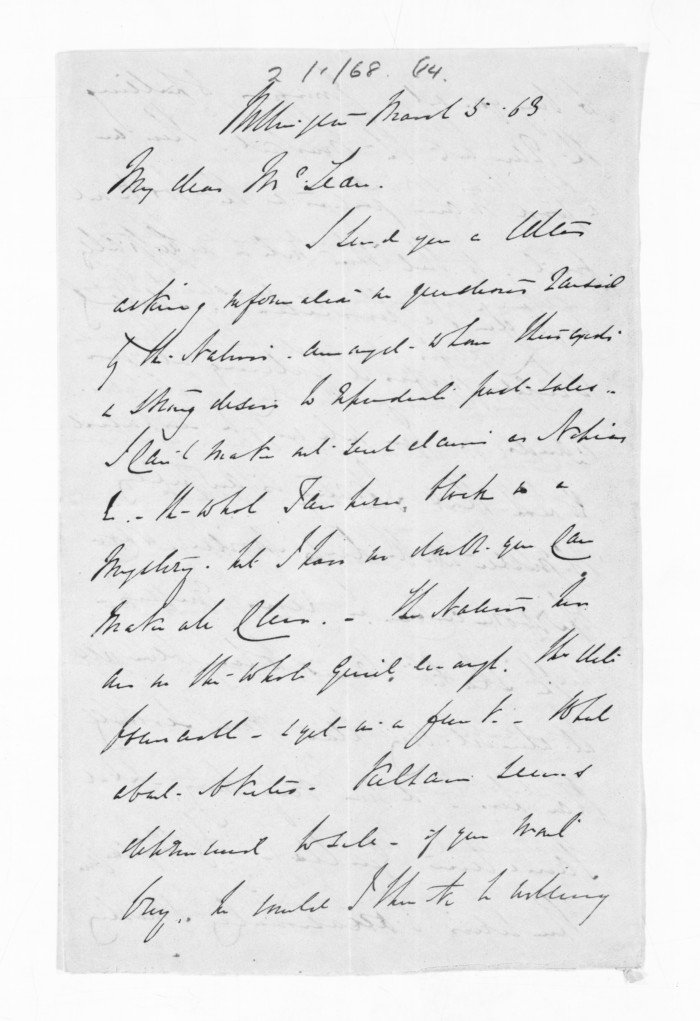 2/1/68. 64.
Wellington March 5. 63
My dear McLean.
I send you a letter
asking information on questions raised
by the Natives - amongst whom there exists
a strong desire to repudiate past sales -
I can't make out such claims as
- the whole block is a
mystery. but I have no doubt you can
make all clear. - The Natives here
are on the whole quiet enough. The
- What
about - seems
determined to sell - if you want
buy.. he would I think be willing